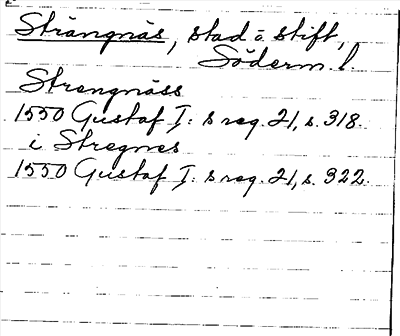 Strängnäs, stad o stift,
Söderm. l.
Strengnäss
1550 Gustaf I:s reg. 21, s. 318.
i Stregnes
1550 Gustaf I:s reg. 21, s. 322.